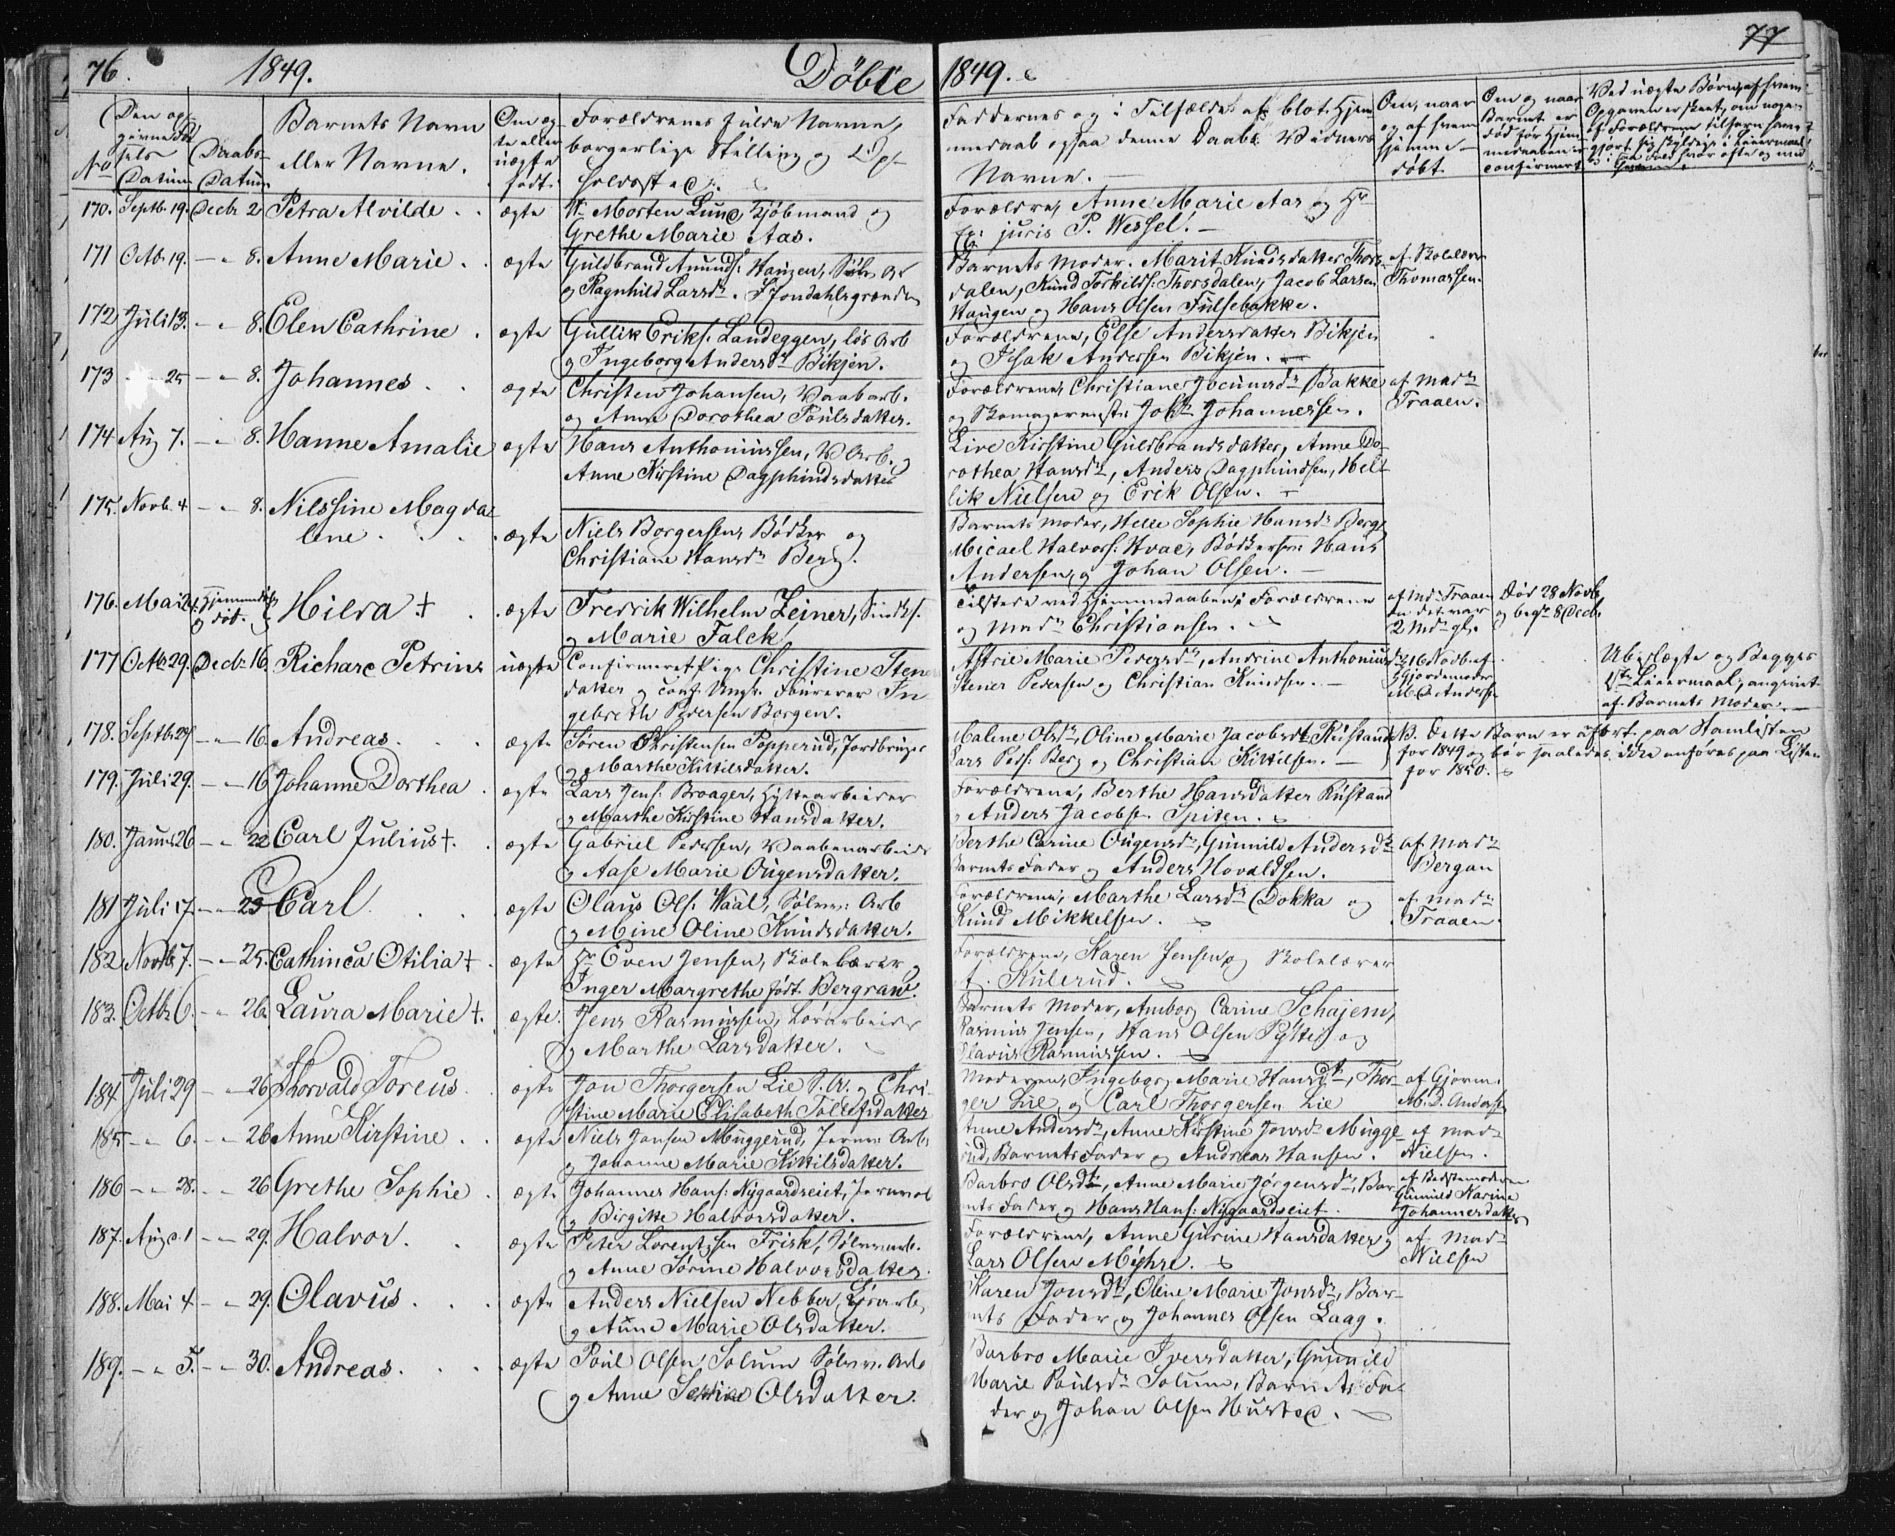 76.
1849.
Døbte
1849.
77
No
Daabs-
Datum
Datum
Barnets Navn
eller Navne.
Om æg-
te eller
uægte
født.
Forældrenes fulde Navne,
borgerlige Stilling og Op-
holdst
Faddernes og i Tilfælde af blot Hjem
medaab ogsaa denne Daabs Vidners
Navne.
Om, naar
og af hvem
hjemme-
døbt.
Om og naar
Barnet er
død før Hjem
medaaben er
confirmert
170. Septb. 19. Decbr 2 Petra Alvilde . . ægte Morten Lund, Kjøbmand og
Grethe Marie Aas.
Forældre, Anne Marie Aas og Hr
juris P. Wessel.
171 Octb. 19. - " 8. Anne Marie . . ægte Guldbrand Amunds: Haugen, Sølv Ar
og Ragnhild Larsdr.
Barnets Moder. Marit Knudsdatter Thors-
dalen, Knud Torkilds: Thorsdalen, Jacob Larsen
Haugen og Hans Olsen Fulsebakke.
af Skolelær
Thomassen.
172 Juli 13. - " 8. Elen Cathrine . ægte Gullik Eriks: Landeggen, løs Arb
og Ingeborg Andersdr Bikjen.
Forældrene, Else Andersdatter Bikjen
og Isak Andersen Bikjen.
173 - " 25 - " 8. Johannes . . ægte Christen Johansen, Vaabarb.
og Anne Dorothea Poulsdatter.
Forældrene, Christiane Jocumsdr Bakke
og Skomagermestr Johannessen.
af Madm
Traaen.
174 Aug 7. - " 8. Hanne Amalie ægte Hans Anthoniussen, V Arb. og
Anne Kirstine Dagphindsdatter
Live Kirstine Guldbrandsdatter, Anne Do-
rothea Hansdr, Anders Dagphindsen, Kel-
lik Nielsen og Erik Olsen.
175. Novb. 4 - " 8. Nilssine Magda
lene . . . ægte Niels Borgersen, Bødker og
Christiane Hansdr Berg.
Barnets Moder, Helle Sophie Hansdr Berg
Micael Halvors: Hvael, Bødkersv: Hans
Andersen, og Johan Olsen.
176. Mai 24 hjemmed.
og død. Hilda † . ægte Fredrik Wilhelm Zeiner,
og Marie Falck
Tilstede ved Hjemmedaaben: Forældrene
og Madm Christiansen.
af Md: Traaen
da det var
2 Mdr gl.
Død 28 Novb
og begr 8 Decb.
177 Octb. 29. Decbr 16. Richard Petrins uægte Confirmeret Pige Christine Stens
datter og conf. Ungk. Fourerer In
gebreth Pedersen Borgen.
Astrie Marie Pedersdr, Andrine Anthonius
Stener Pedersen og Christian Knudsen.
dr 16 Novb af
Gjordemoder
M. D. Anderse
Ubeslægte og Begges
1ste Leiermaal, angivet
af Barnets Moder.
178. Septb. 24 - " 16. Andreas . . . ægte Søren Christensen Popperud, Jordbruger
og Marthe Kittilsdatter.
Malene Olsdr, Oline Marie Jacobsdt Rustand
Lars Peds: Berg og Christian Kittilsen.
NB. Dette Barn er anført paa Hamlisten
for 1849 og bør saaledes ikke anføres paa Listen
for 1850.
179. Juli 29. - " 16 Johanne Dorthea . ægte Lars Jens: Broager, Hyttearbeider
og Marthe Kirstine Hansdatter.
Forældrene, Berthe Hansdatter Rustand
og Anders Jacobsen Spiten.
180. Januar 26 - " 22 Carl Julius †. . ægte Gabriel Pedersen, Vaabenarbeider
og Aase Marie Ougensdatter.
Berthe Carine Ougensdr, Gunnild Andersdr
Barnets Fader og Anders Hovaldsen.
af Madm
Bergan
181 Juli 17. - " 23 Carl . . . ægte Olaus Ols: Waal, Sølvv: Arb
og Mine Oline Knudsdatter.
Forældrene, Marthe Larsdr Dokka og
Knud Mikkelsen.
af Madm
Traaen.
182. Novb. 7. - " 25. Cathinca Otilia † . ægte Hr Even Jensen, Skolelærer og
Inger Margrethe født Bergran.
Forældrene, Karen Jensen og Skolelærer
Stulerud.
183. Octb. 6. - " 26. Laura Marie †. ægte. Jens Rasmussen, Løsarbeider
og Marthe Larsdatter.
Barnets Moder, Amborg Carine Schajem,
Rasmus Jensen, Hans Olsen Pytte og
Olavus Rasmussen.
184. Juli 29 - " 26 Thorvald Toreus . ægte Jon Thorgersen Lie S. A. og Chri-
stine Marie Elisabeth Tollefsdatter
Moderen, Ingeborg Marie Hansdt, Thor-
ger Lie og Carl Thorgersen Lie
af Gjorm.
M. D. Anderse
185 - " 6. - " 26 Anne Kirstine . . ægte Niels Jonsen Muggerud, Jernv: Arb.
og Johanne Marie Kittilsdatter.
Anne Andersdr, Anne Kirstine Jonsdr Mugge-
rud, Barnets Fader og Andreas Hansen.
af Madm
Nielsen.
186 - " 28. - " 26 Grethe Sophie . ægte Johannes Hans: Nygaardseiet,
og Birgitte Halvorsdatter.
Barbro Olsdtr, Anne Marie Jørgensdr, Bar-
nets Fader og Hans Hans: Nygaardseiet.
af Bedstemoderen
Gunnild Karine
Johannesdatter
187. Aug. 1 - " 29. Halvor. . . ægte Peter Lorentzsen Frisk, Sølvv: arb.
og Anne Torine Halvorsdatter.
Forældrene, Anne Gurine Hansdatter og
Lars Olsen Myhre.
af Madm
Nielsen
188. Mai 4 - " 29. Olavus . . . ægte Anders Nielsen Nebber, arb.
og Anne Marie Olsdatter.
Karen Jonsdtr, Oline Marie Jonsdr, Bar-
nets Fader og Johannes Olsen Laag.
189. - " 5. - " 30. Andreas . . . ægte Poul Olsen Solum Sølvv. Arb
og Anne Olsdatter.
Barbro Marie Iversdatter, Gunnild
Marie Poulsdr Solum, Barnets Fa-
der og Johan Olsen